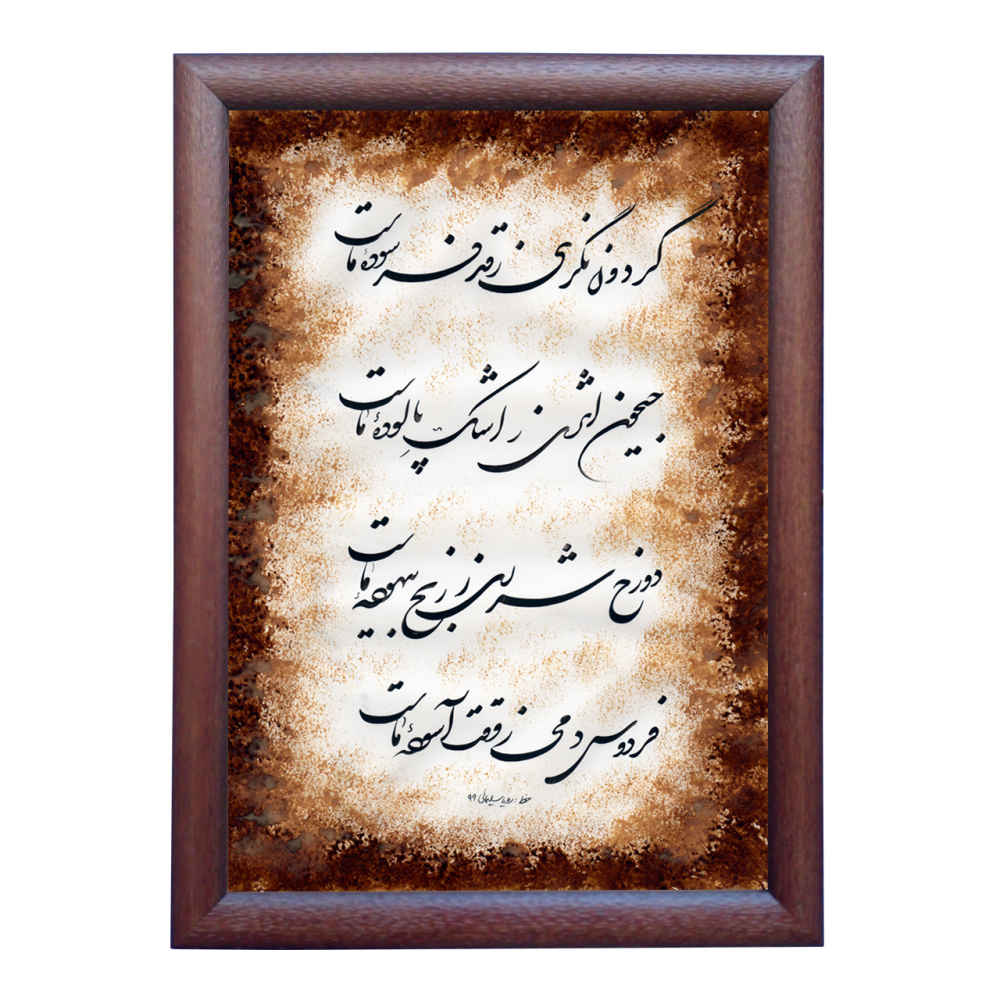 گردون نگری ز قد فرسودهٔ ماست
جیحون اثری ز اشک پالودهٔ ماست
دوزخ شرری ز رنج بیهودهٔ ماست
فردوس دمی ز وقت آسودهٔ ماست
خط : رویا سلیمانی ۹۹